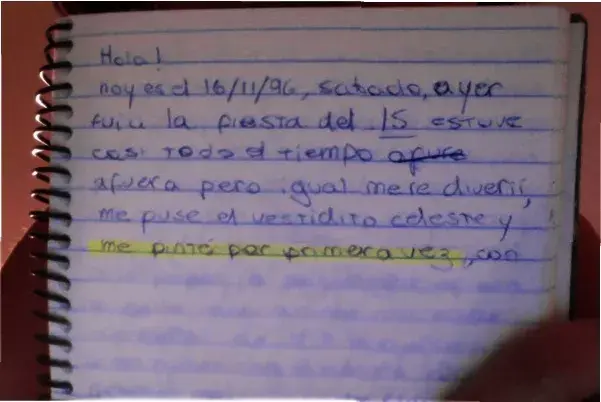 Hola!
hoy es el 16/11/96, sabado, ayer
fui a la fiesta del 15 estuve
casi todo el tiempo afure
afuera pero igual me re diverti,
me puse el vestidito celeste y
me pinté por primera vez, con